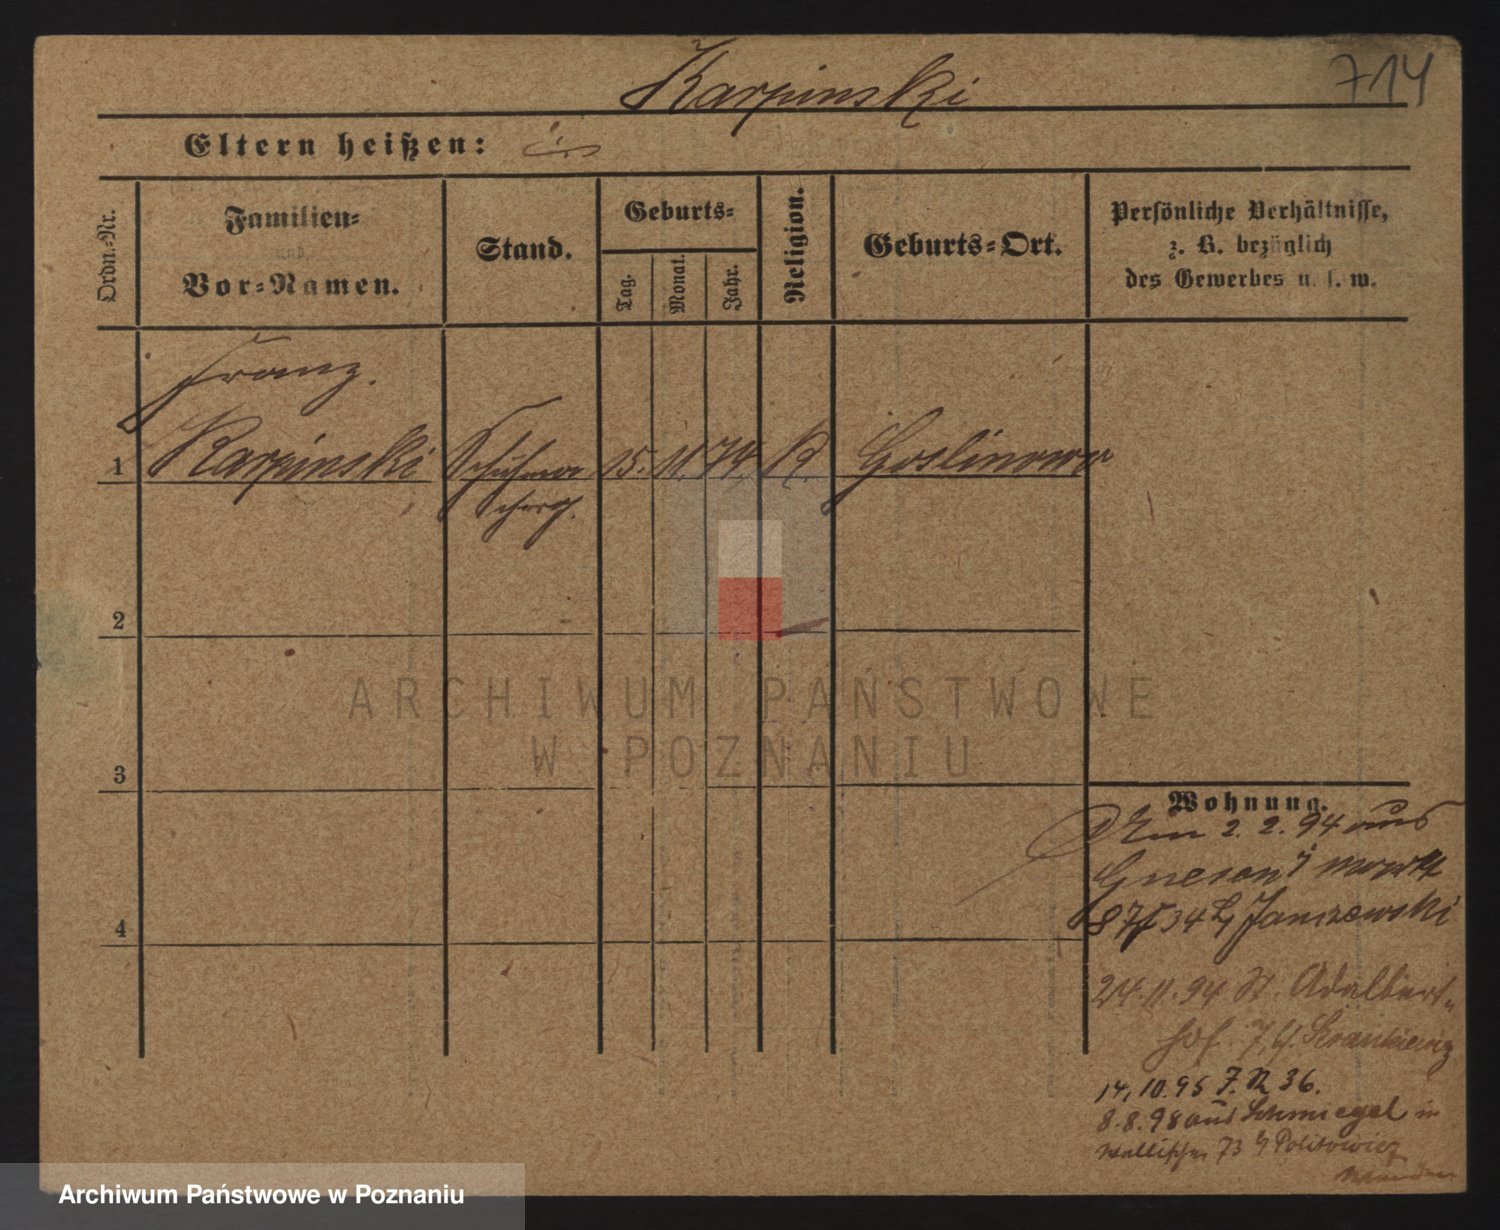 Karpinski
714
Eltern heißen:
Ordn.-Nr.
Familien-
und
Vor-Namen.
Stand.
Geburts-
Tag.
Monat.
Jahr.
Religion.
Geburts-Ort.
Persönliche Verhältnisse,
z. B. bezüglich
des Gewerbes u. s. w.
Franz.
1 Karpinski 15. 11. 74. K. Goslinowo
2
ARCHIWUM PAŃSTWOWE
W POZNANIU
3
Wohnung.
2. 2. 94 aus
Gnesen
34 Janizewski
4
24. 11. 94 St. Adalbert-
hof. 7,
14,10.95 36.
8.8.98 aus Schmiegel in
Wallischei 73 Politowicz
Archiwum Państwowe w Poznaniu